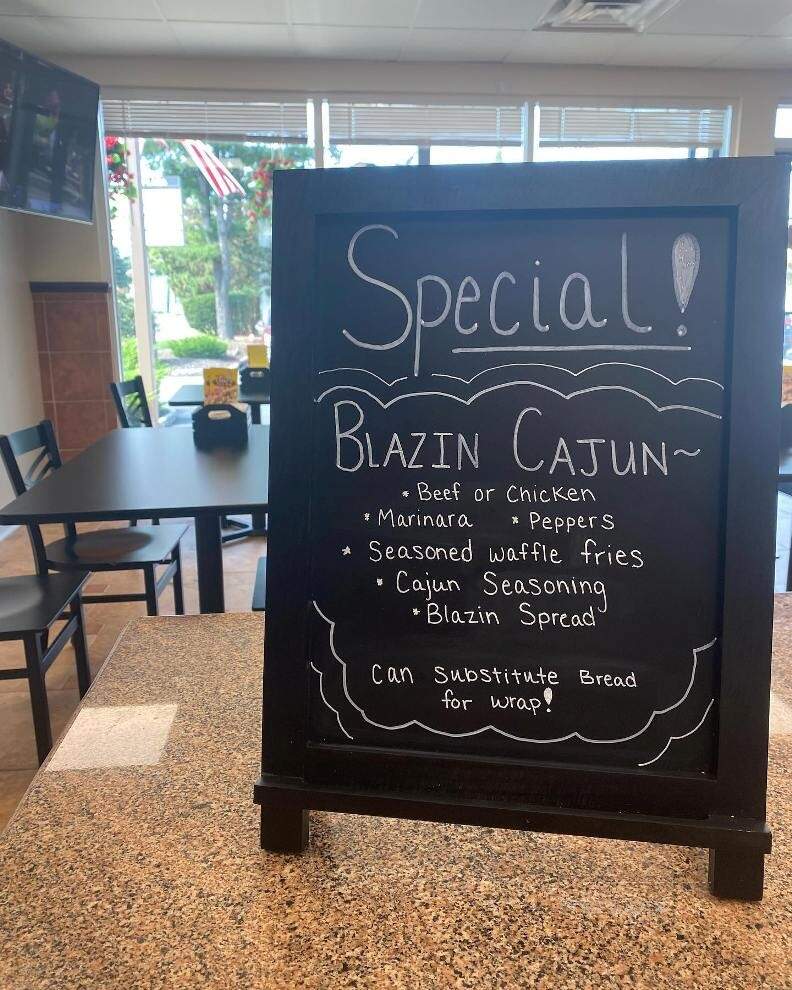 Special!
BLAZIN CAJUN~
* Beef or Chicken
* Marinara * Peppers
* Seasoned waffle fries
* Cajun Seasoning
* Blazin Spread
Can Substitute Bread
for wrap!